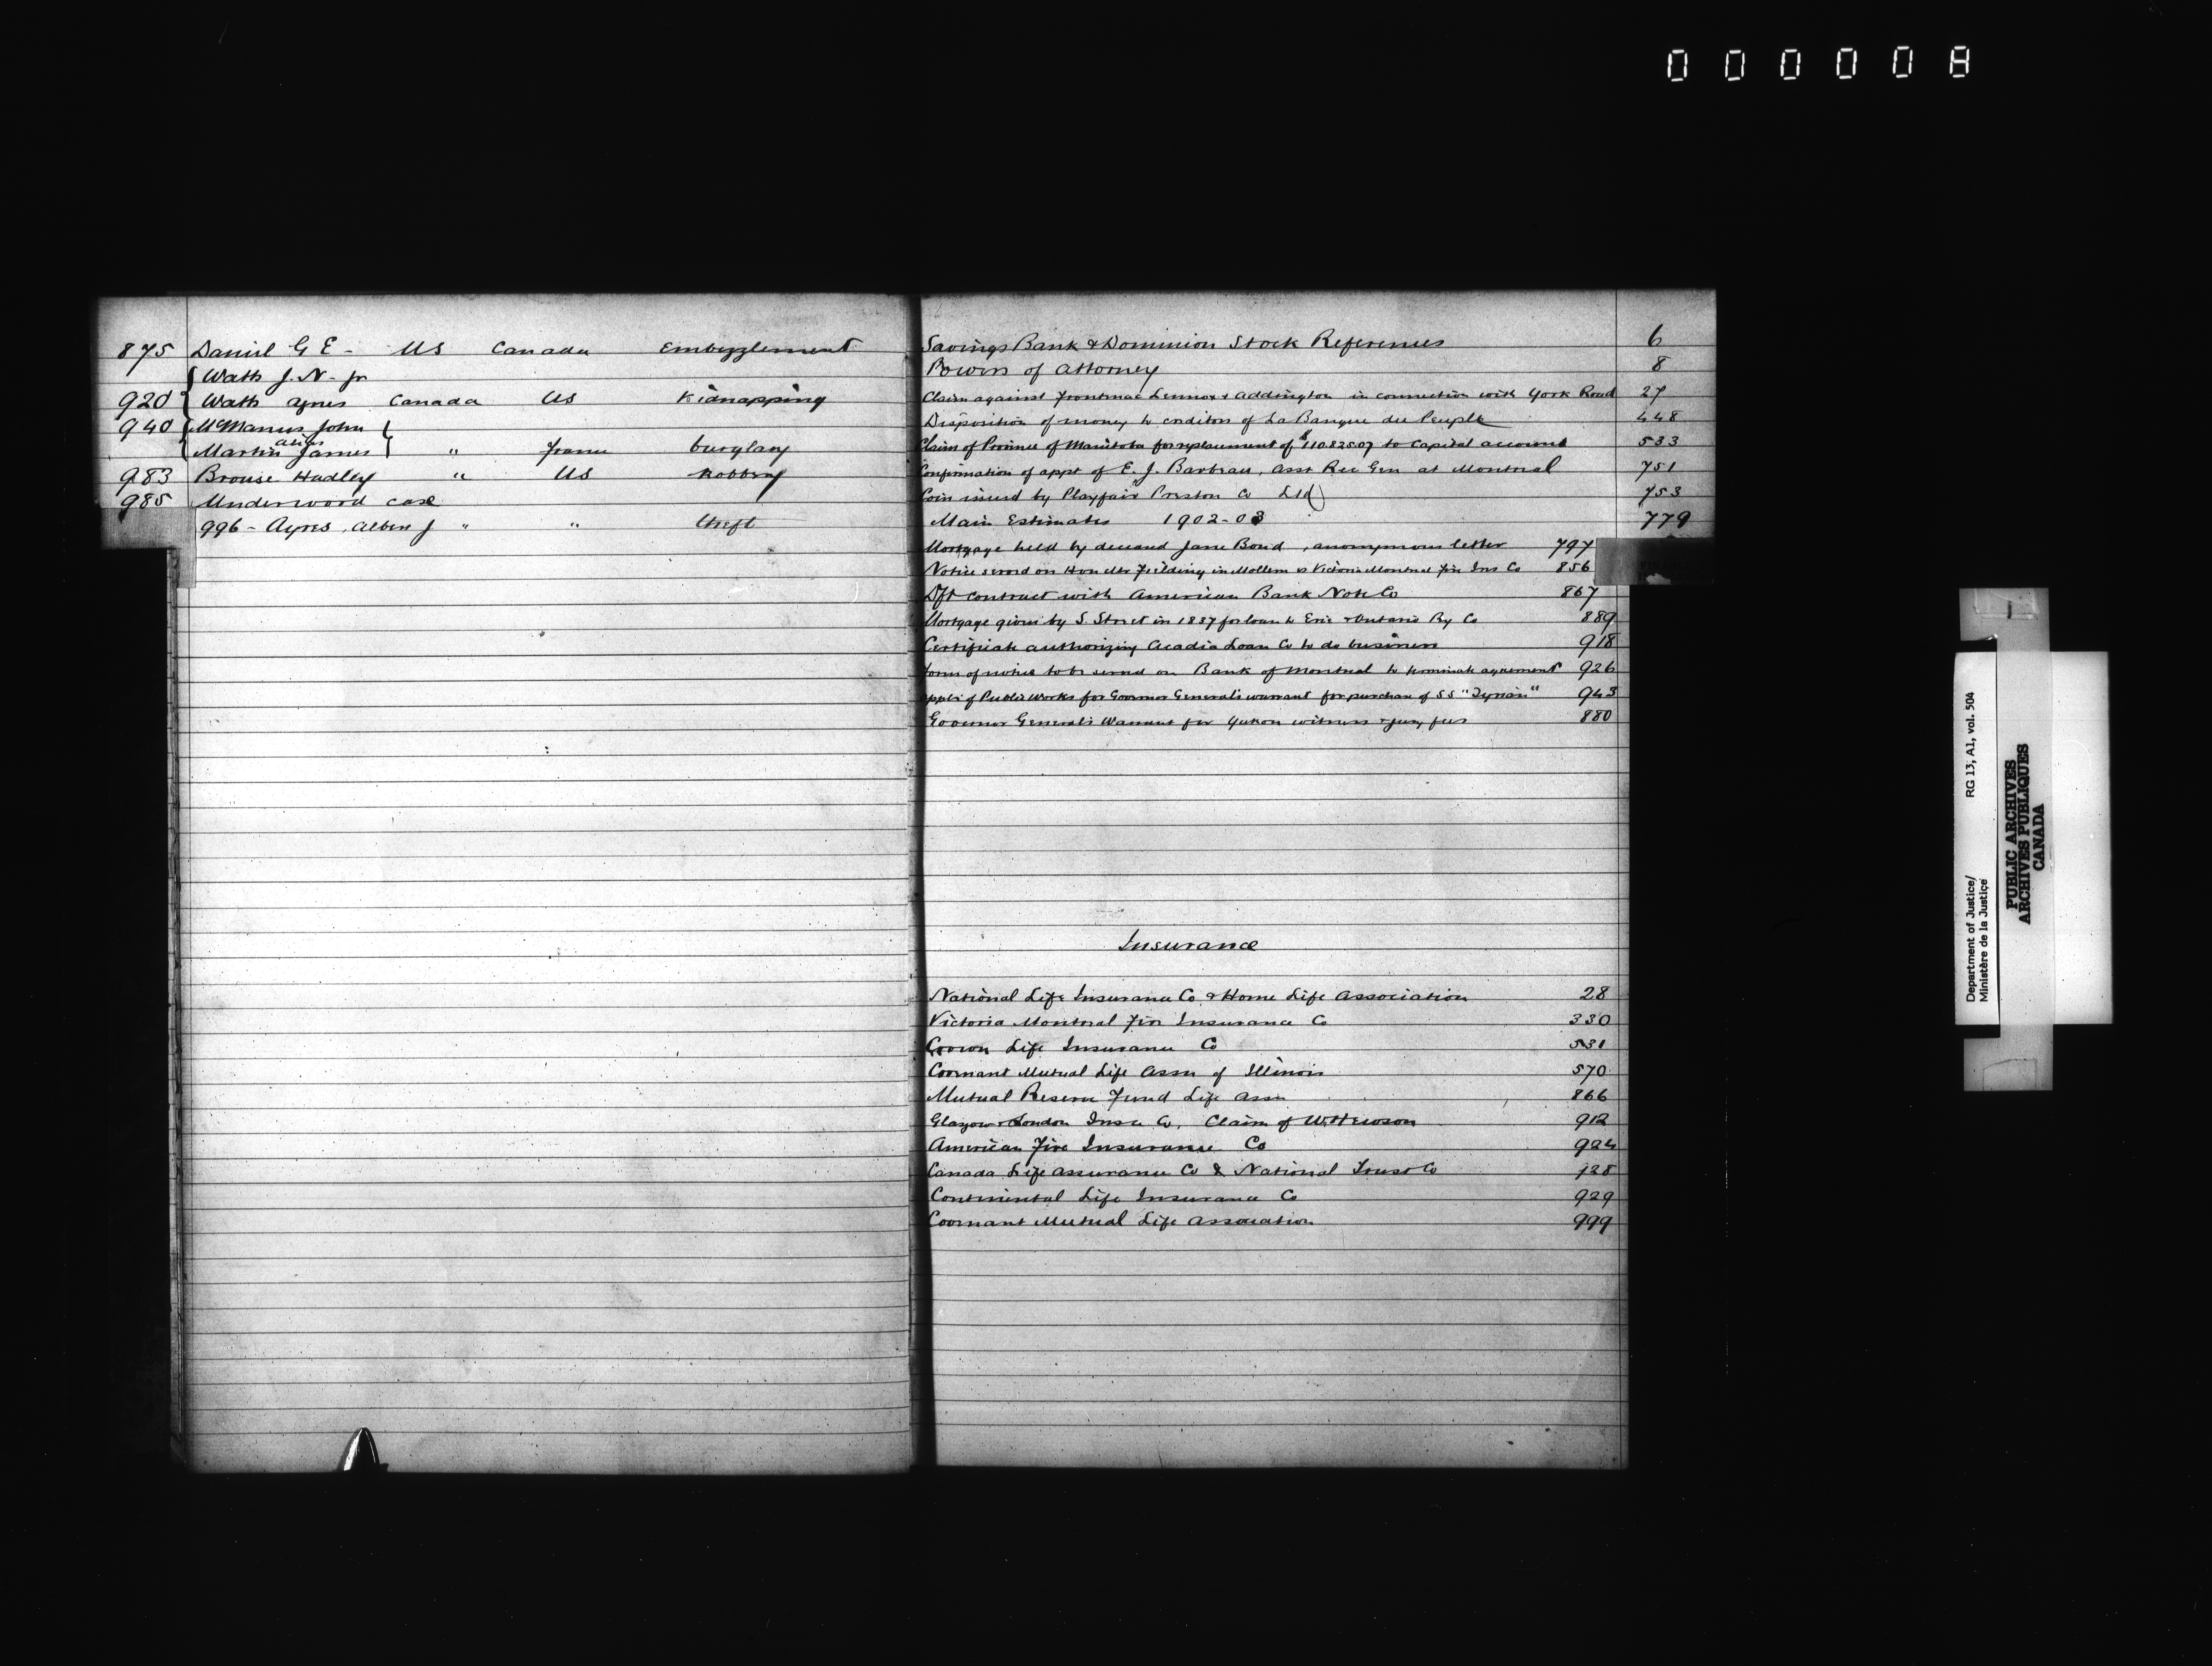 000008
875 Daniel G E - US Canada Embezzlement
Watts J. N. jr
920 Watts Agnes Canada US Kidnapping
940 McManus John
alias
Martin James " France burglary
983 Brouse Hadley " US Robbery
985 Underwood case
996 - Ayres, Albert J " " theft
Savings Bank & Dominion Stock References 6
Powers of Attorney 8
Claim against Frontenac Lennox & Addington in connection with York Road 27
Disposition of money to creditors of La Banque du Peuple 448
Claim of Province of Manitoba for replacement of $11082507 to Capital account 533
Confirmation of appt of E. J. Barbeau, Asst Rec Gen at Montreal 751
Coin issued by Playfair Preston Co Ltd 753
Main Estimates 1902-03 779
Mortgage held by deceased Jane Bond, anonymous letter 797
Notice served on Hon Mr Fielding in Mollem v Victoria Montreal Fire Ins Co 856
Dft contract with American Bank Note Co 867
Mortgage given by S. Street in 1837 for loan to Erie & Ontario Ry Co 889
Certificate authorizing Acadia Loan Co to do business 918
Form of notice to be served on Bank of Montreal to terminate agreement 926
Appln of Public Works for Governor General's warrant for purchase of SS "Tyrian" 943
Governor General's Warrant for Yukon witness & jury fees 880
Insurance
National Life Insurance Co & Home Life Association 28
Victoria Montreal Fire Insurance Co 330
Crown Life Insurance Co 531
Covenant Mutual Life Assn of Illinois 570
Mutual Reserve Fund Life Assn 866
Glasgow & London Insce Co, Claim of W. Hewson 912
American Fire Insurance Co 924
Canada Life Assurance Co & National Trust Co 728
Continental Life Insurance Co 929
Covenant Mutual Life Association 999
Department of Justice/ RG 13, A1, vol. 504
Ministère de la Justice
PUBLIC ARCHIVES
ARCHIVES PUBLIQUES
CANADA